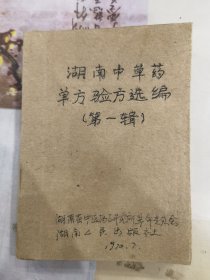 湖南中草药
单方验方选编
(第一辑)
湖南省中医药研究所革命委员会
湖南人民出版社
1970.7.